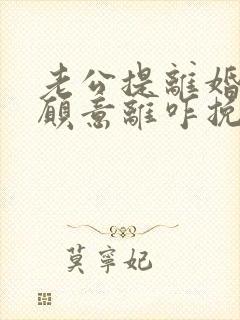 老公提離婚
願意離咋挽
莫寧妃